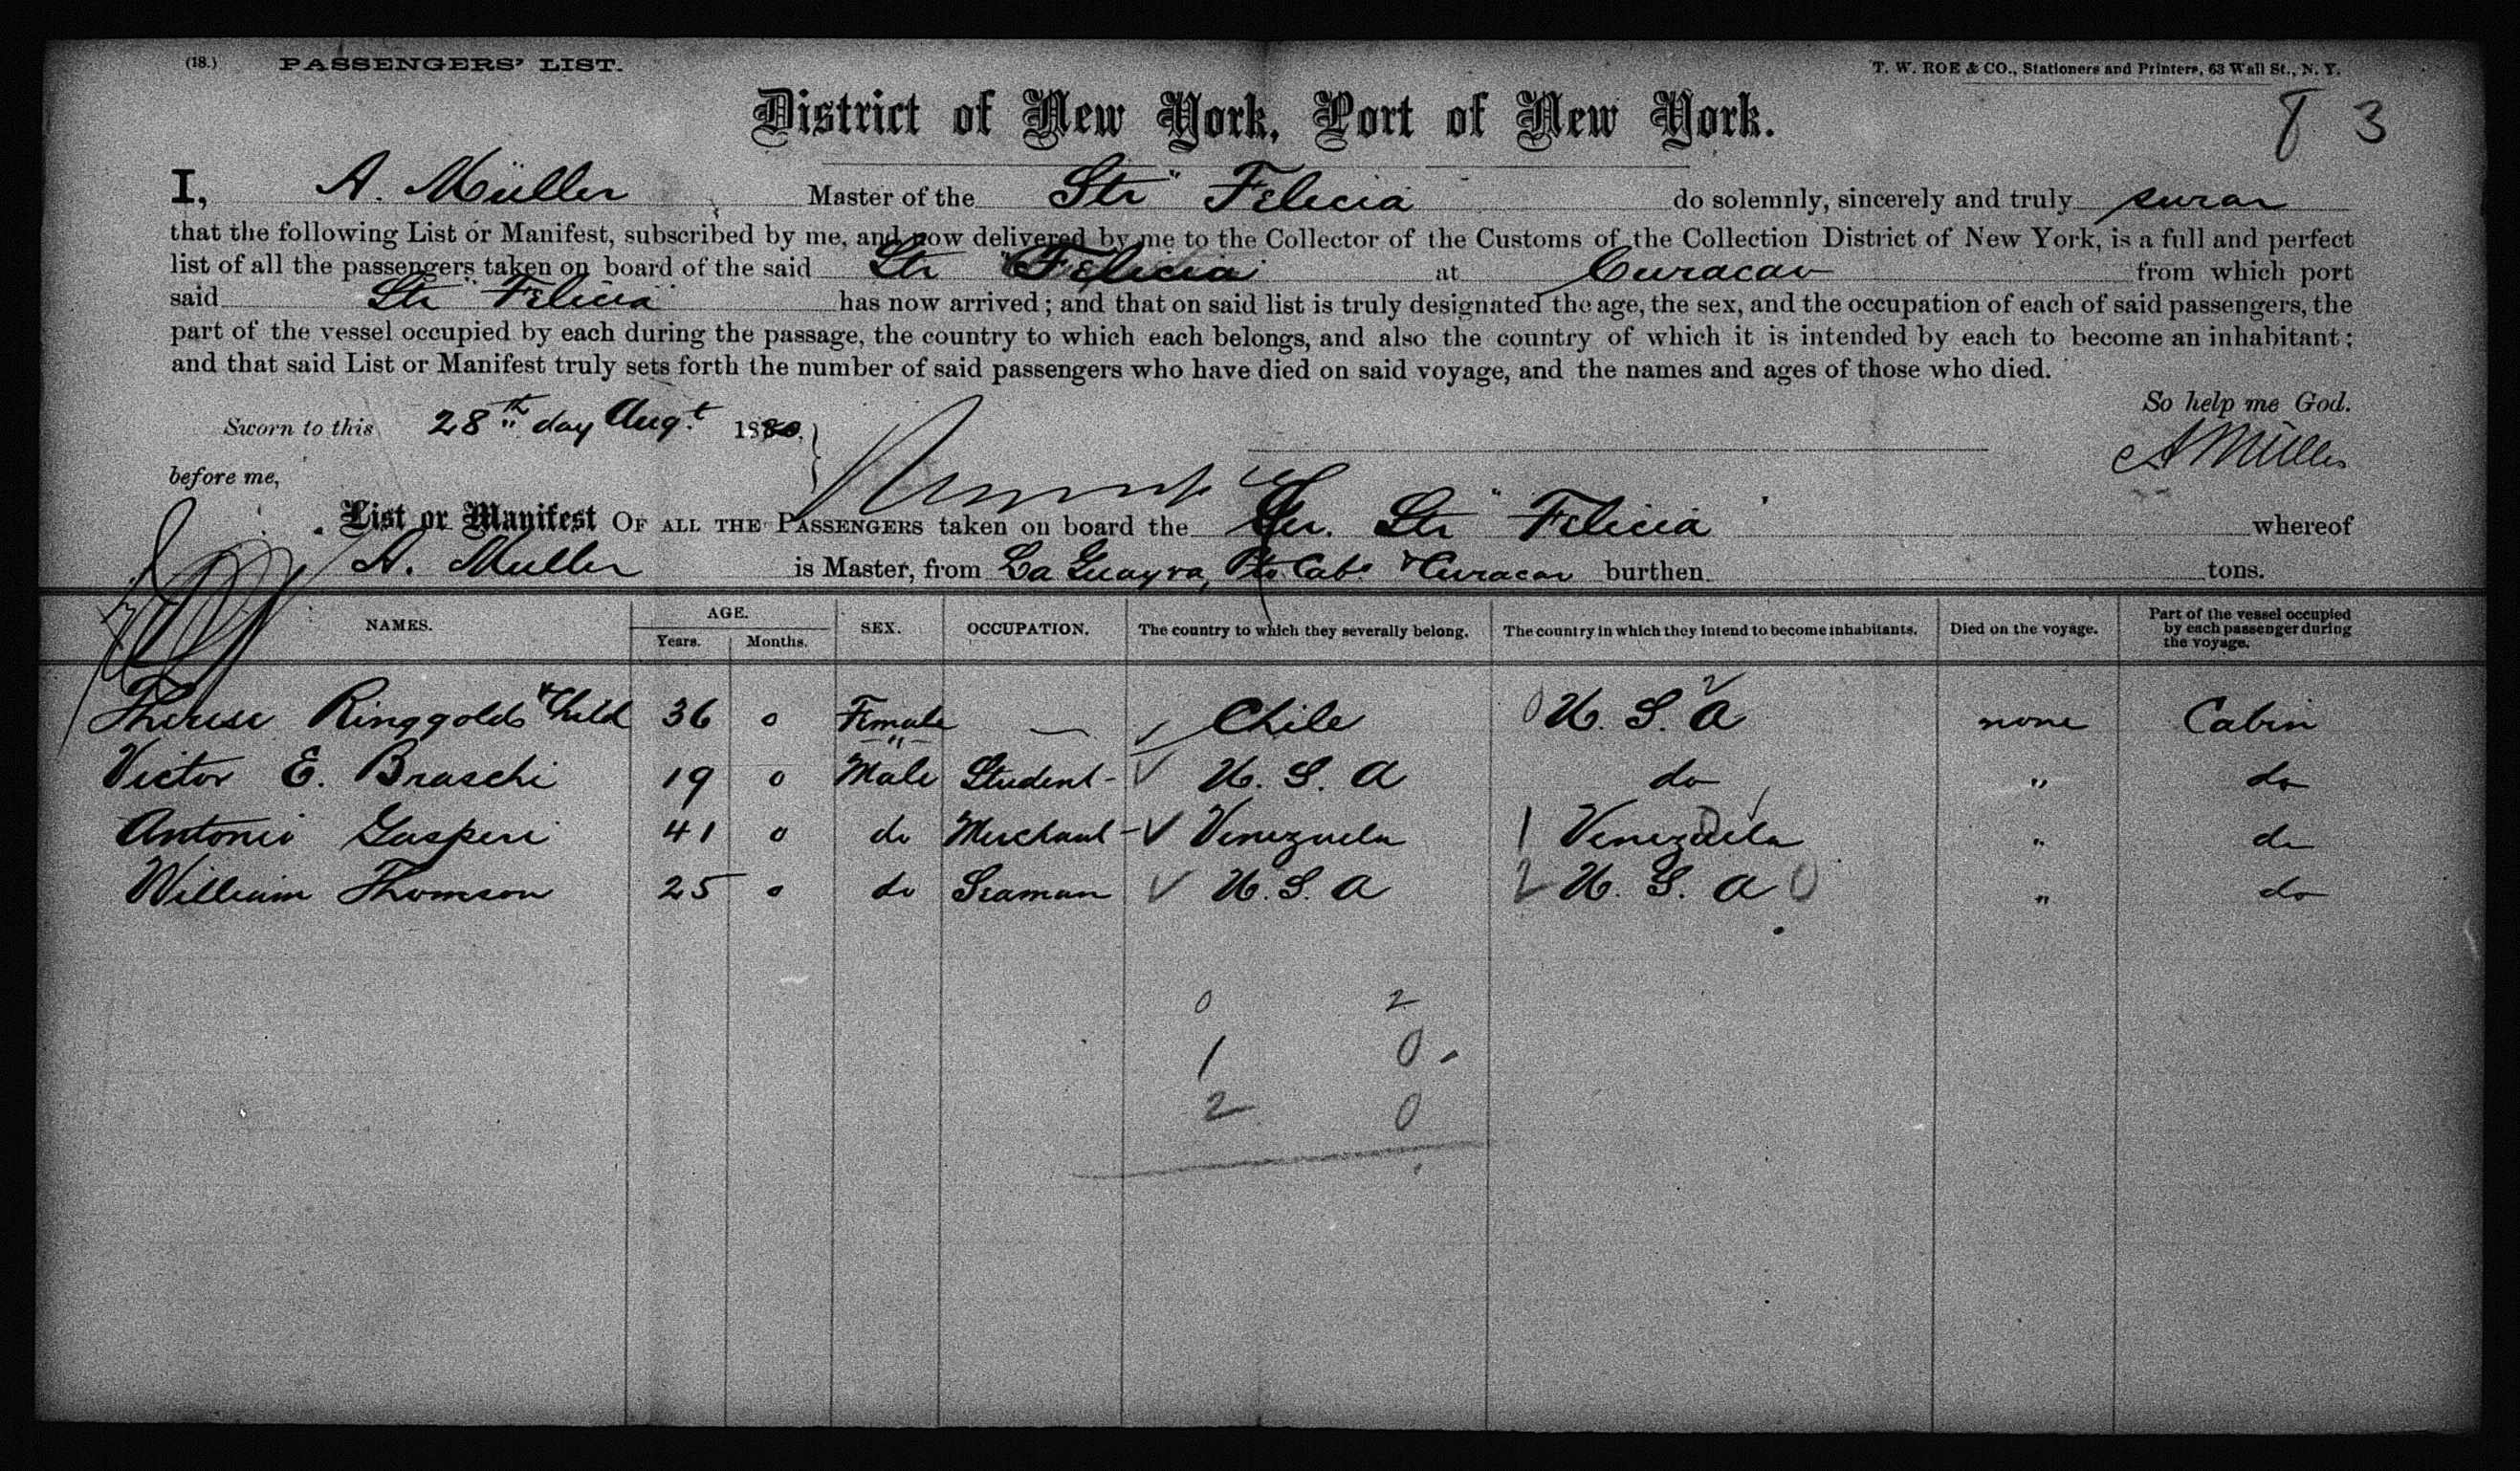 (18.) PASSENGERS' LIST. T. W. ROE & CO., Stationers and Printers, 63 Wall St., N. Y.
8 3
District of New York, Port of New York.
I, A. Müller Master of the Str "Felicia do solemnly, sincerely and truly swear
that the following List or Manifest, subscribed by me, and now delivered by me to the Collector of the Customs of the Collection District of New York, is a full and perfect
list of all the passengers taken on board of the said Str "Felicia" at Curacao from which port
said Str "Felicia" has now arrived; and that on said list is truly designated the age, the sex, and the occupation of each of said passengers, the
part of the vessel occupied by each during the passage, the country to which each belongs, and also the country of which it is intended by each to become an inhabitant;
and that said List or Manifest truly sets forth the number of said passengers who have died on said voyage, and the names and ages of those who died.
So help me God.
Sworn to this 28th day Augt 1880.
A Müller
before me,
List or Manifest OF ALL THE PASSENGERS taken on board the Ger. Str "Felicia" whereof
A. Muller is Master, from La Guayra, Pto Cabo & Curacao burthen tons.
NAMES. AGE. Years. Months. SEX. OCCUPATION. The country to which they severally belong. The country in which they intend to become inhabitants. Died on the voyage. Part of the vessel occupied by each passenger during the voyage.
Therese Ringgolds & Child 36 0 Female — Chile 0 U. S. A none Cabin
Victor E. Braschi 19 0 Male Student - U. S. A do " do
Antonio Gasperi 41 0 do Merchant - Venezuela 1 Venezuela " do
William Thomson 25 0 do Seaman U. S. A 2 U. S. A 0 " do
0 2
1 0
2 0